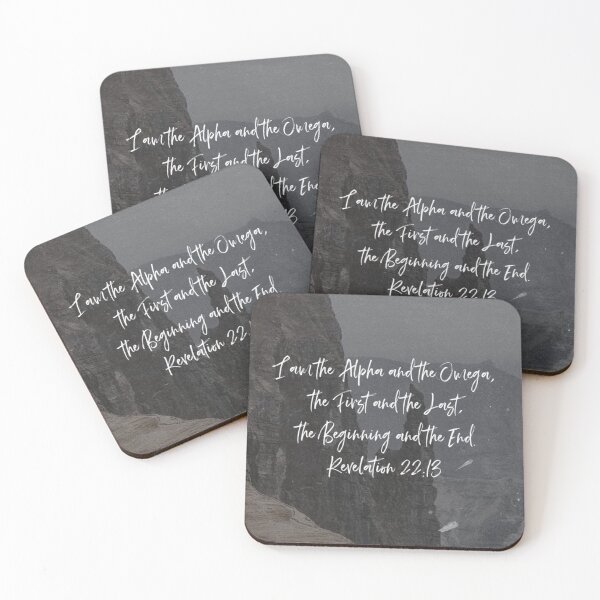 I am the Alpha and the Omega,
the First and the Last,
the End
I am the Alpha and the Omega,
the First and the Last,
the Beginning and the End.
Revelation 22:13
I am the Alpha and the Omega,
the First and the Last,
the Beginning and the End
Revelation 22:
I am the Alpha and the Omega,
the First and the Last,
the Beginning and the End.
Revelation 22:13